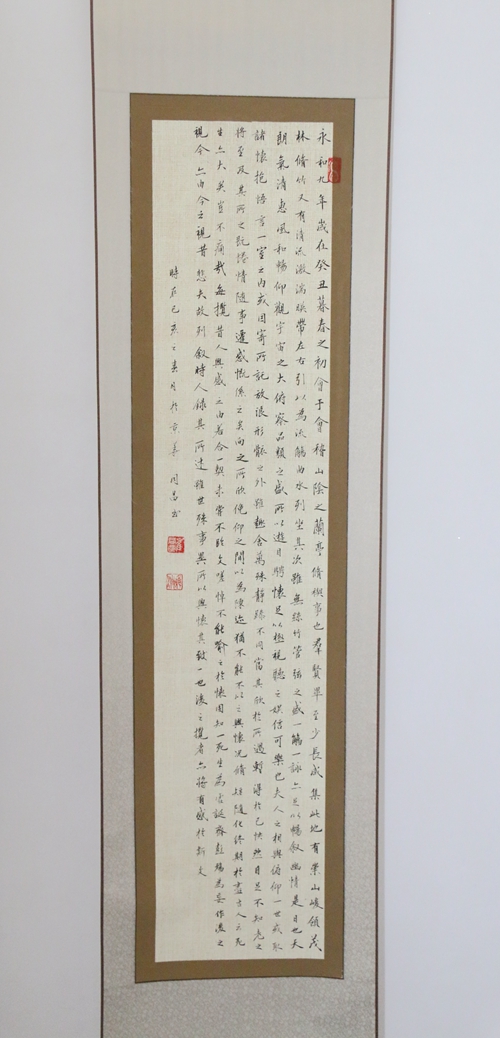 永和九年歲在癸丑暮春之初會于會稽山陰之蘭亭脩禊事也羣賢畢至少長咸集此地有崇山峻領茂
林脩竹又有清流激湍暎帶左右引以為流觴曲水列坐其次雖無絲竹管弦之盛一觴一詠亦足以暢叙幽情是日也天
朗氣清惠風和暢仰觀宇宙之大俯察品類之盛所以遊目騁懷足以極視聽之娛信可樂也夫人之相與俯仰一世或取
諸懷抱悟言一室之内或因寄所託放浪形骸之外雖趣舍萬殊靜躁不同當其欣於所遇暫得於己快然自足不知老之
將至及其所之既惓情隨事遷感慨係之矣向之所欣俛仰之間以為陳迹猶不能不以之興懷況脩短隨化終期於盡古人云死
生亦大矣豈不痛哉每攬昔人興感之由若合一契未嘗不臨文嗟悼不能喻之於懷固知一死生為虛誕齊彭殤為妄作後之
視今亦由今之視昔悲夫故列叙時人錄其所述雖世殊事異所以興懷其致一也後之攬者亦將有感於斯文
時在己亥之春月於 周昌書